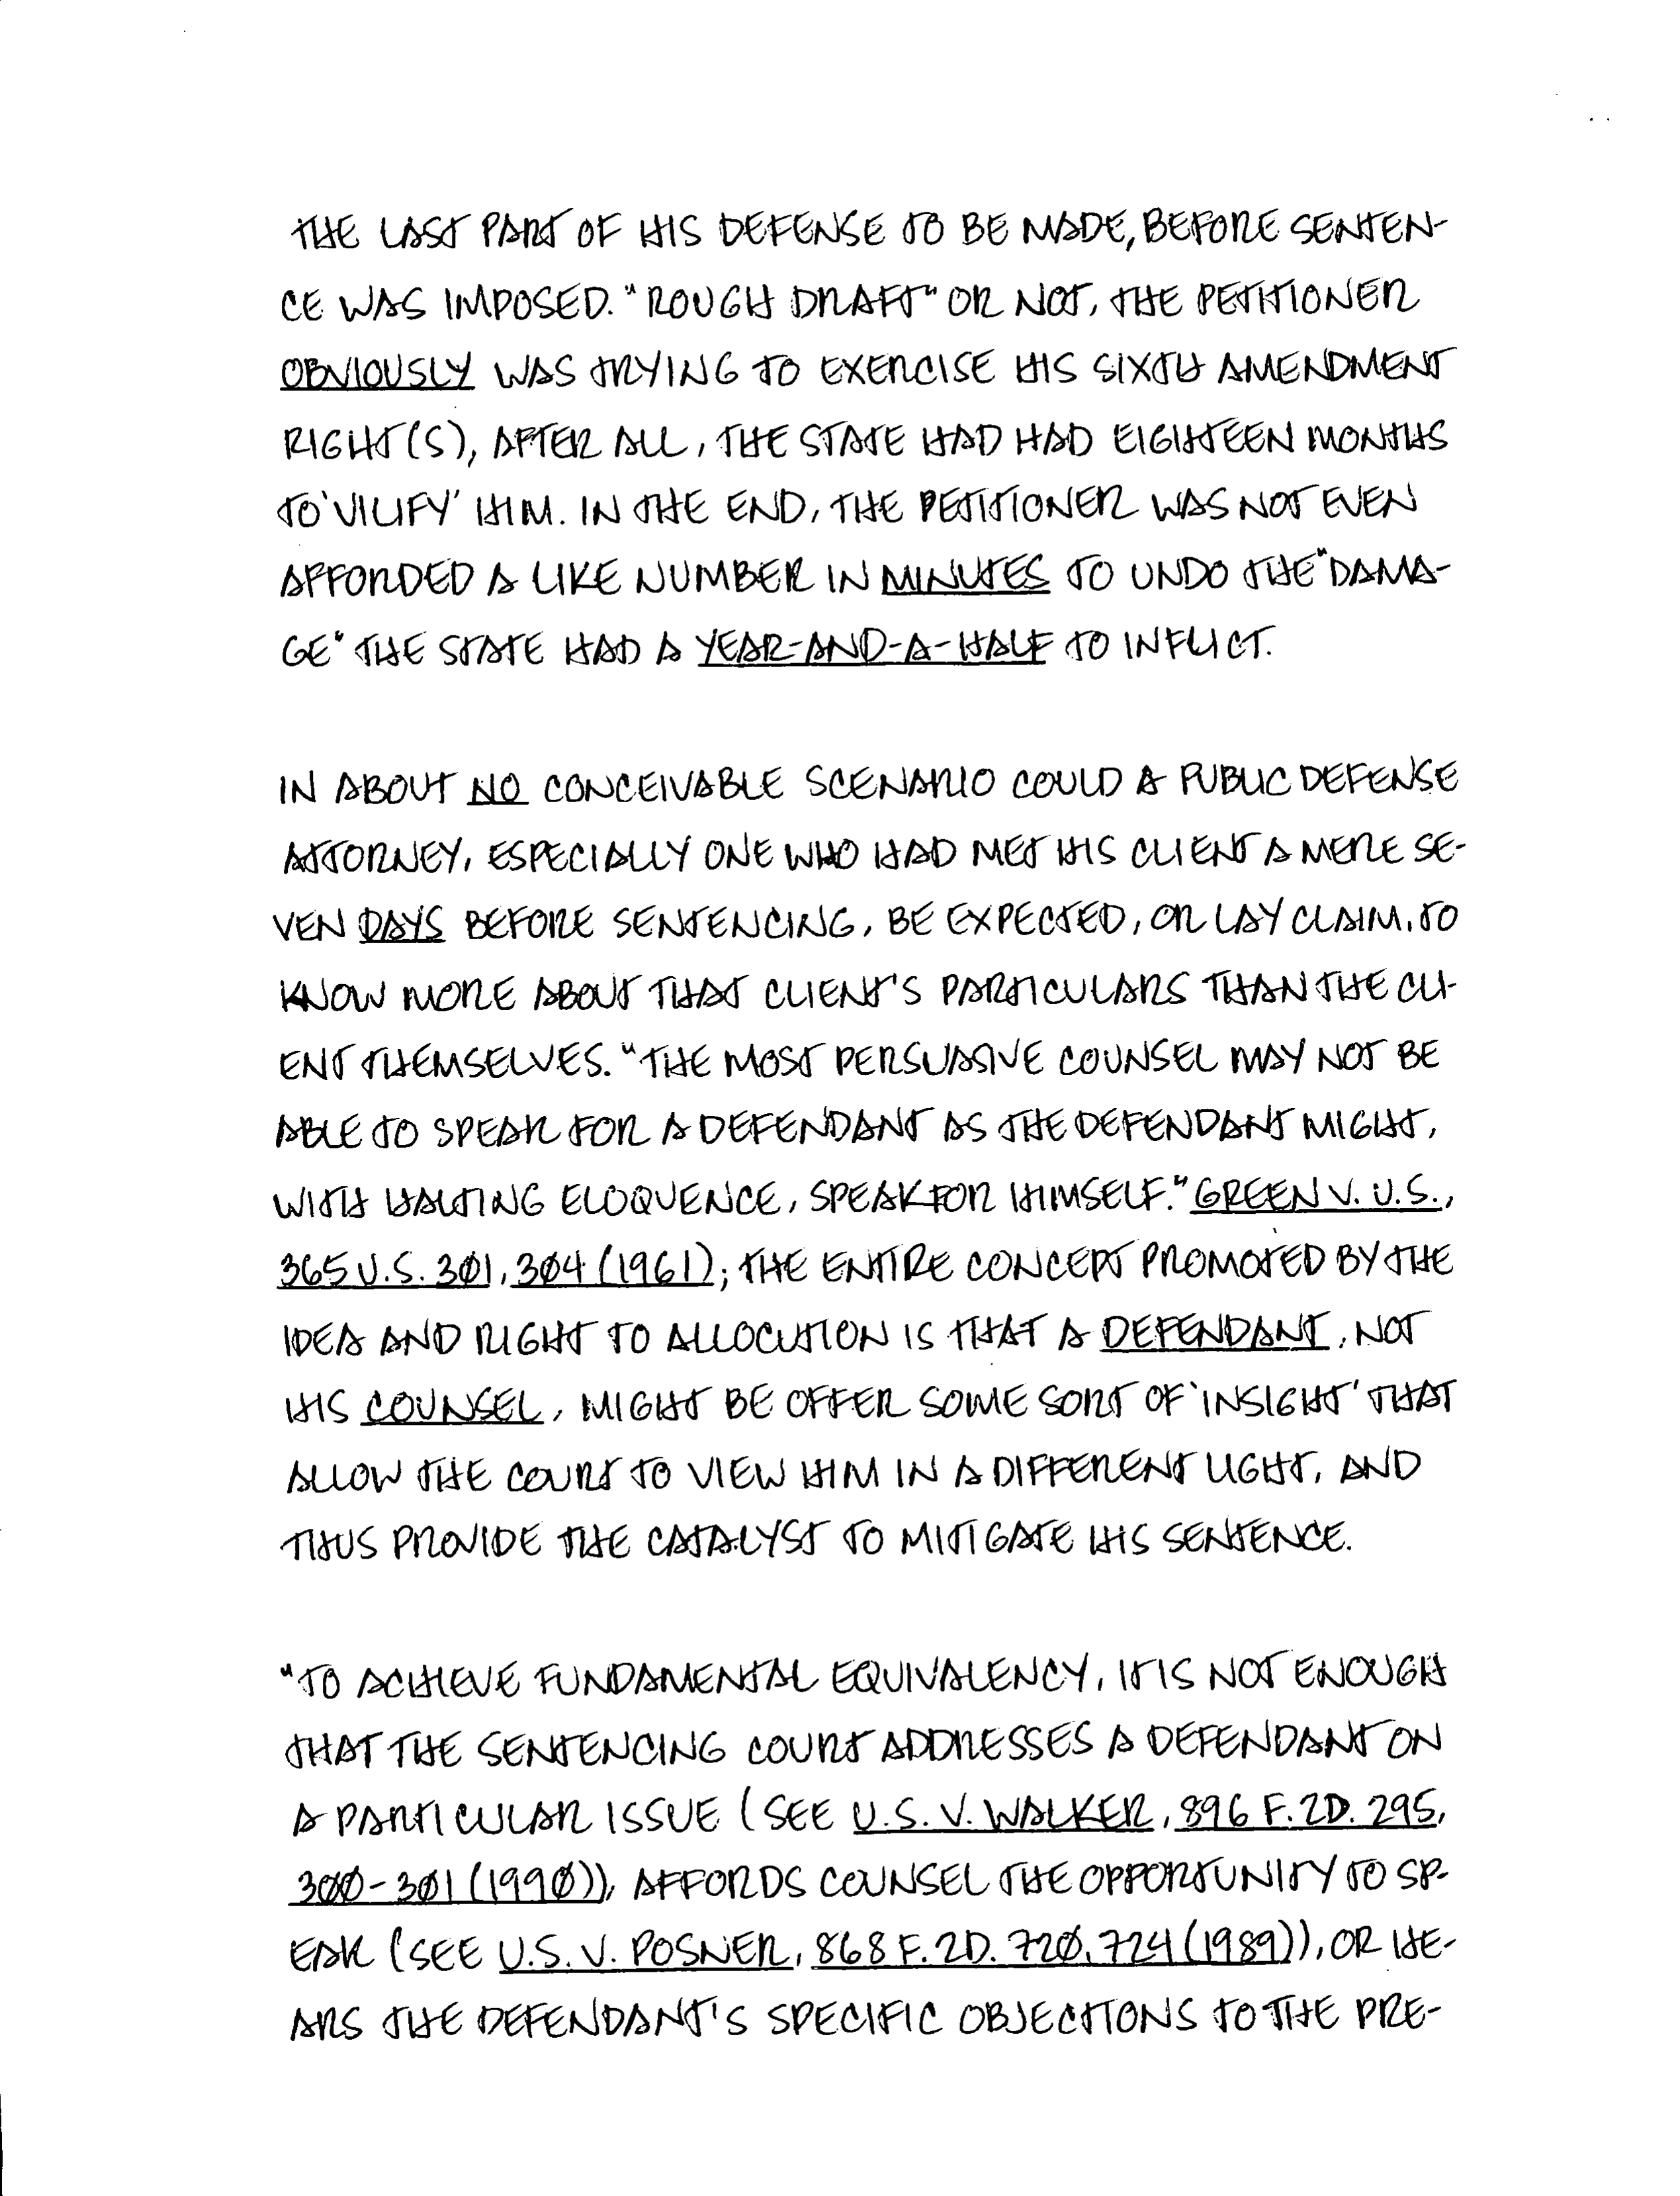 THE LAST PART OF HIS DEFENSE TO BE MADE, BEFORE SENTEN-
CE WAS IMPOSED. "ROUGH DRAFT" OR NOT, THE PETITIONER
OBVIOUSLY WAS TRYING TO EXERCISE HIS SIXTH AMENDMENT
RIGHT(S), AFTER ALL, THE STATE HAD HAD EIGHTEEN MONTHS
TO 'VILIFY' HIM. IN THE END, THE PETITIONER WAS NOT EVEN
AFFORDED A LIKE NUMBER IN MINUTES TO UNDO THE "DAMA-
GE" THE STATE HAD A YEAR-AND-A-HALF TO INFLICT.
IN ABOUT NO CONCEIVABLE SCENARIO COULD A PUBLIC DEFENSE
ATTORNEY, ESPECIALLY ONE WHO HAD MET HIS CLIENT A MERE SE-
VEN DAYS BEFORE SENTENCING, BE EXPECTED, OR LAY CLAIM, TO
KNOW MORE ABOUT THAT CLIENT'S PARTICULARS THAN THE CLI-
ENT THEMSELVES. "THE MOST PERSUASIVE COUNSEL MAY NOT BE
ABLE TO SPEAK FOR A DEFENDANT AS THE DEFENDANT MIGHT,
WITH HALTING ELOQUENCE, SPEAK FOR HIMSELF." GREEN V. U.S.,
365 U.S. 301, 304 (1961); THE ENTIRE CONCEPT PROMOTED BY THE
IDEA AND RIGHT TO ALLOCUTION IS THAT A DEFENDANT, NOT
HIS COUNSEL, MIGHT BE OFFER SOME SORT OF 'INSIGHT' THAT
ALLOW THE COURT TO VIEW HIM IN A DIFFERENT LIGHT, AND
THUS PROVIDE THE CATALYST TO MITIGATE HIS SENTENCE.
"TO ACHIEVE FUNDAMENTAL EQUIVALENCY, IT IS NOT ENOUGH
THAT THE SENTENCING COURT ADDRESSES A DEFENDANT ON
A PARTICULAR ISSUE (SEE U.S. V. WALKER, 896 F. 2D. 295,
300-301 (1990)), AFFORDS COUNSEL THE OPPORTUNITY TO SP-
EAK (SEE U.S. V. POSNER, 868 F. 2D. 720, 724 (1989)), OR HE-
ARS THE DEFENDANT'S SPECIFIC OBJECTIONS TO THE PRE-